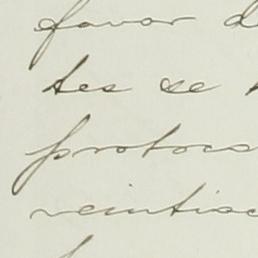 favor d
tes de
protoco
veintisé